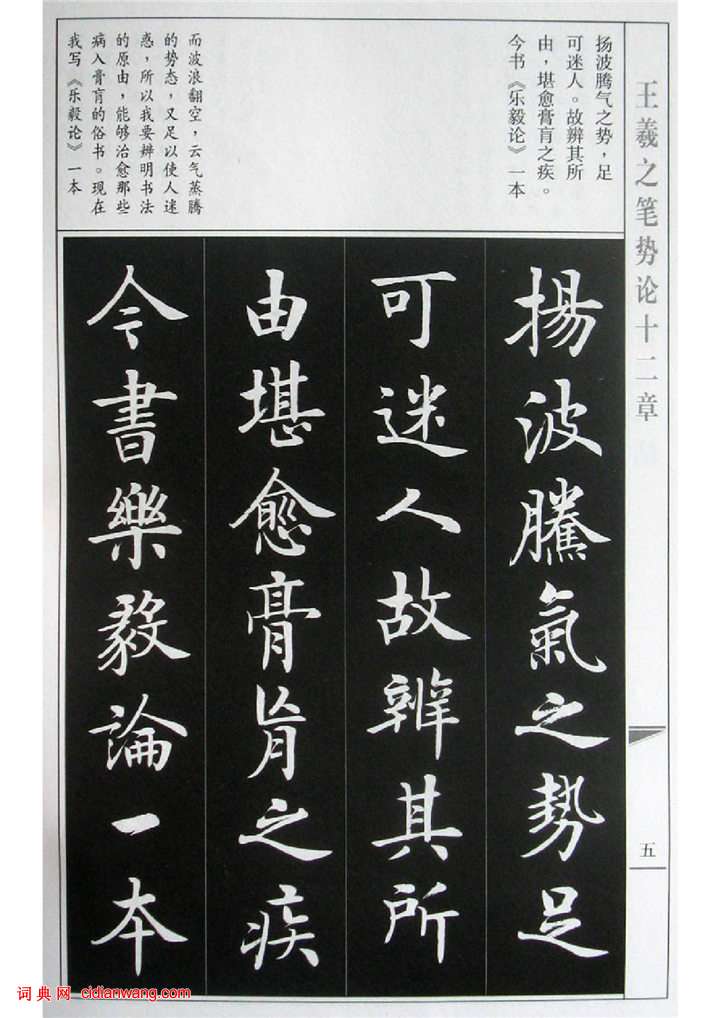 王羲之笔势论十二章
五
扬波腾气之势，足
可迷人。故辨其所
由，堪愈膏肓之疾。
今书《乐毅论》一本
而波浪翻空，云气蒸腾
的势态，又足以使人迷
惑，所以我要辨明书法
的原由，能够治愈那些
病入膏肓的俗书。现在
我写《乐毅论》一本
揚波騰氣之勢足
可迷人故辨其所
由堪愈膏肓之疾
今書樂毅論一本
词典网 cidianwang.com